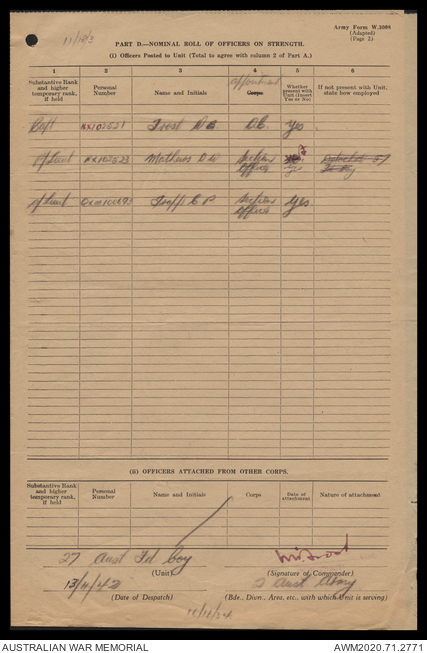 Army Form W.3008
(Adapted)
(Page 2)
PART D.—NOMINAL ROLL OF OFFICERS ON STRENGTH.
(i) Officers Posted to Unit (Total to agree with column 2 of Part A.)
1 2 3 4 5 6
Substantive Rank and higher temporary rank, if held
Personal Number
Name and Initials
appointment
Corps
Whether present with Unit (Insert Yes or No)
If not present with Unit, state how employed
Capt Frost O.C. yes
Section Officer yes
Section Officer yes
(ii) OFFICERS ATTACHED FROM OTHER CORPS.
Substantive Rank and higher temporary rank, if held
Personal Number
Name and Initials
Corps
Date of attachment
Nature of attachment
27 Aust Fd Coy
(Unit)
(Signature of Commander)
13/4/42
2 Aust Army
(Date of Despatch)
(Bde., Divn., Area, etc., with which Unit is serving)
AUSTRALIAN WAR MEMORIAL
AWM2020.71.2771